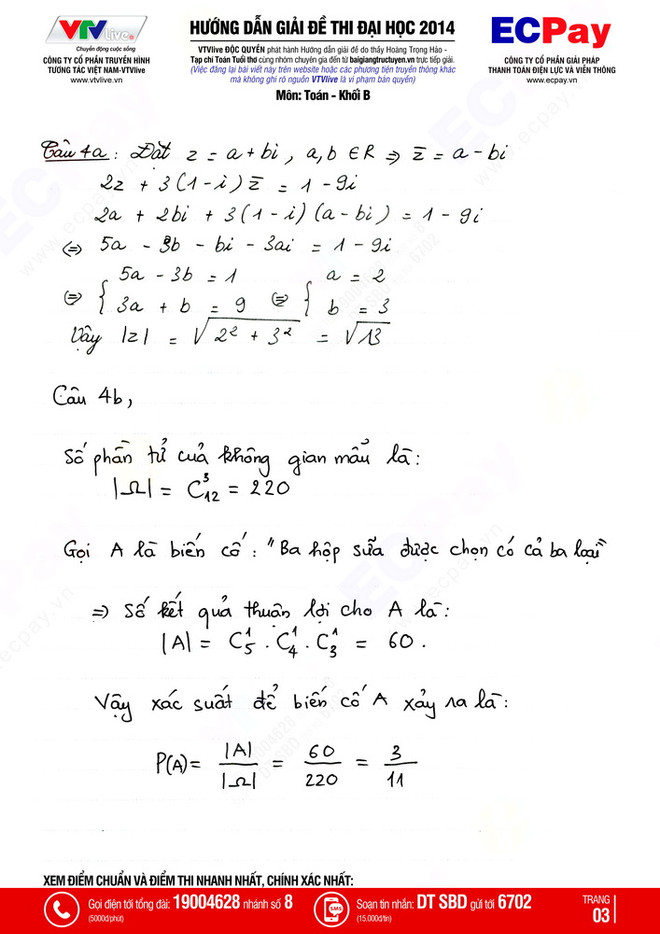 VTV Live
Chuyển động cuộc sống
CÔNG TY CỔ PHẦN TRUYỀN HÌNH
TƯƠNG TÁC VIỆT NAM-VTVlive
www.vtvlive.vn
HƯỚNG DẪN GIẢI ĐỀ THI ĐẠI HỌC 2014
VTVlive ĐỘC QUYỀN phát hành Hướng dẫn giải đề do thầy Hoàng Trọng Hảo -
Tạp chí Toán Tuổi thơ cùng nhóm chuyên gia đến từ baigiangtructuyen.vn trực tiếp giải.
(Việc đăng lại bài viết này trên website hoặc các phương tiện truyền thông khác
mà không ghi rõ nguồn VTVlive là vi phạm bản quyền)
Môn: Toán - Khối B
ECPay
CÔNG TY CỔ PHẦN GIẢI PHÁP
THANH TOÁN ĐIỆN LỰC VÀ VIỄN THÔNG
www.ecpay.vn
Câu 4a: Đặt z = a + bi, a, b ∈ R ⇒ z̅ = a - bi
2z + 3(1-i) z̅ = 1 - 9i
2a + 2bi + 3(1-i)(a-bi) = 1 - 9i
⇔ 5a - 3b - bi - 3ai = 1 - 9i
⇔ { 5a - 3b = 1 ⇔ { a = 2
3a + b = 9 b = 3
Vậy |z| = √(2² + 3²) = √13
Câu 4b,
Số phần tử cuả không gian mẫu là:
|Ω| = C³₁₂ = 220
Gọi A là biến cố: "Ba hộp sữa được chọn có cả ba loại"
⇒ Số kết quả thuận lợi cho A là:
|A| = C¹₅ . C¹₄ . C¹₃ = 60.
Vậy xác suất để biến cố A xảy ra là:
P(A) = |A|/|Ω| = 60/220 = 3/11
XEM ĐIỂM CHUẨN VÀ ĐIỂM THI NHANH NHẤT, CHÍNH XÁC NHẤT:
Gọi điện tới tổng đài: 19004628 nhánh số 8
(5000đ/phút)
SMS
Soạn tin nhắn: DT SBD gửi tới 6702
(15.000đ/tin)
TRANG
03